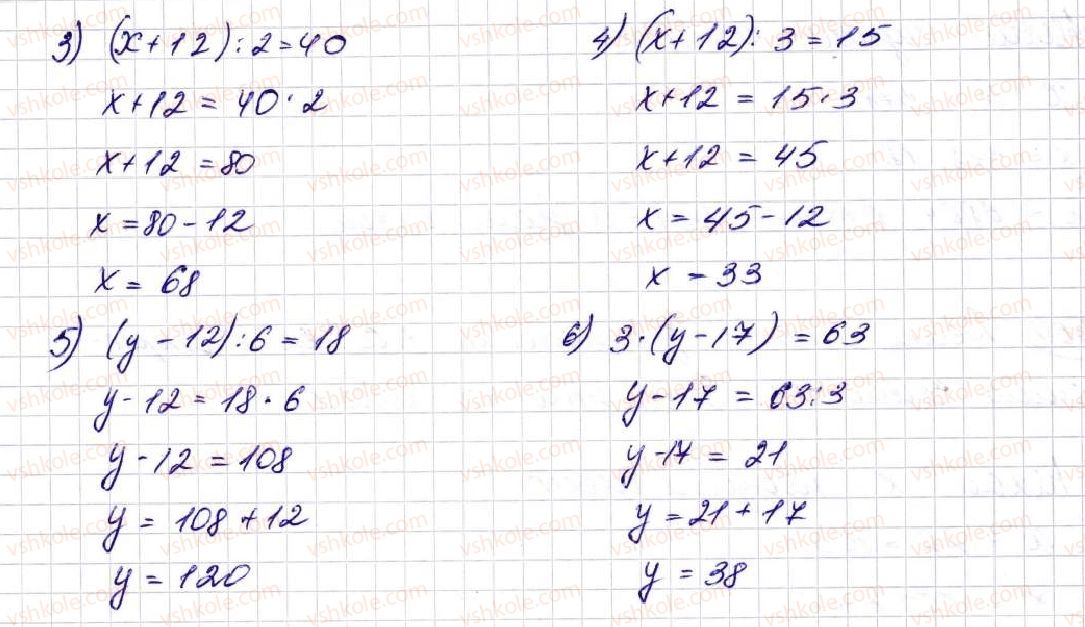 3) (x+12):2=40
x+12 = 40·2
x+12 = 80
x = 80-12
x = 68
4) (x+12): 3 = 15
x+12 = 15·3
x+12 = 45
x = 45-12
x = 33
5) (y - 12):6 = 18
y-12 = 18·6
y-12 = 108
y = 108+12
y = 120
6) 3·(y-17) = 63
y-17 = 63:3
y-17 = 21
y = 21+17
y = 38
vshkole.com